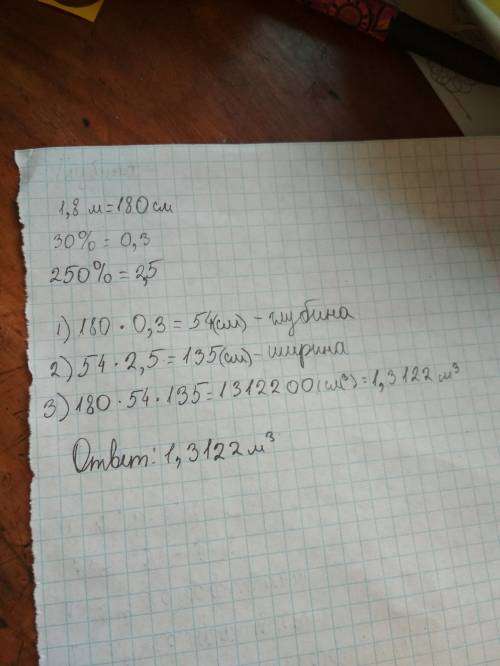 1,8 м = 180 см
30% = 0,3
250% = 2,5
1) 180 · 0,3 = 54(см) - глубина
2) 54 · 2,5 = 135(см) - ширина
3) 180 · 54 · 135 = 1312200(см³) = 1,3122 м³
Ответ: 1,3122 м³